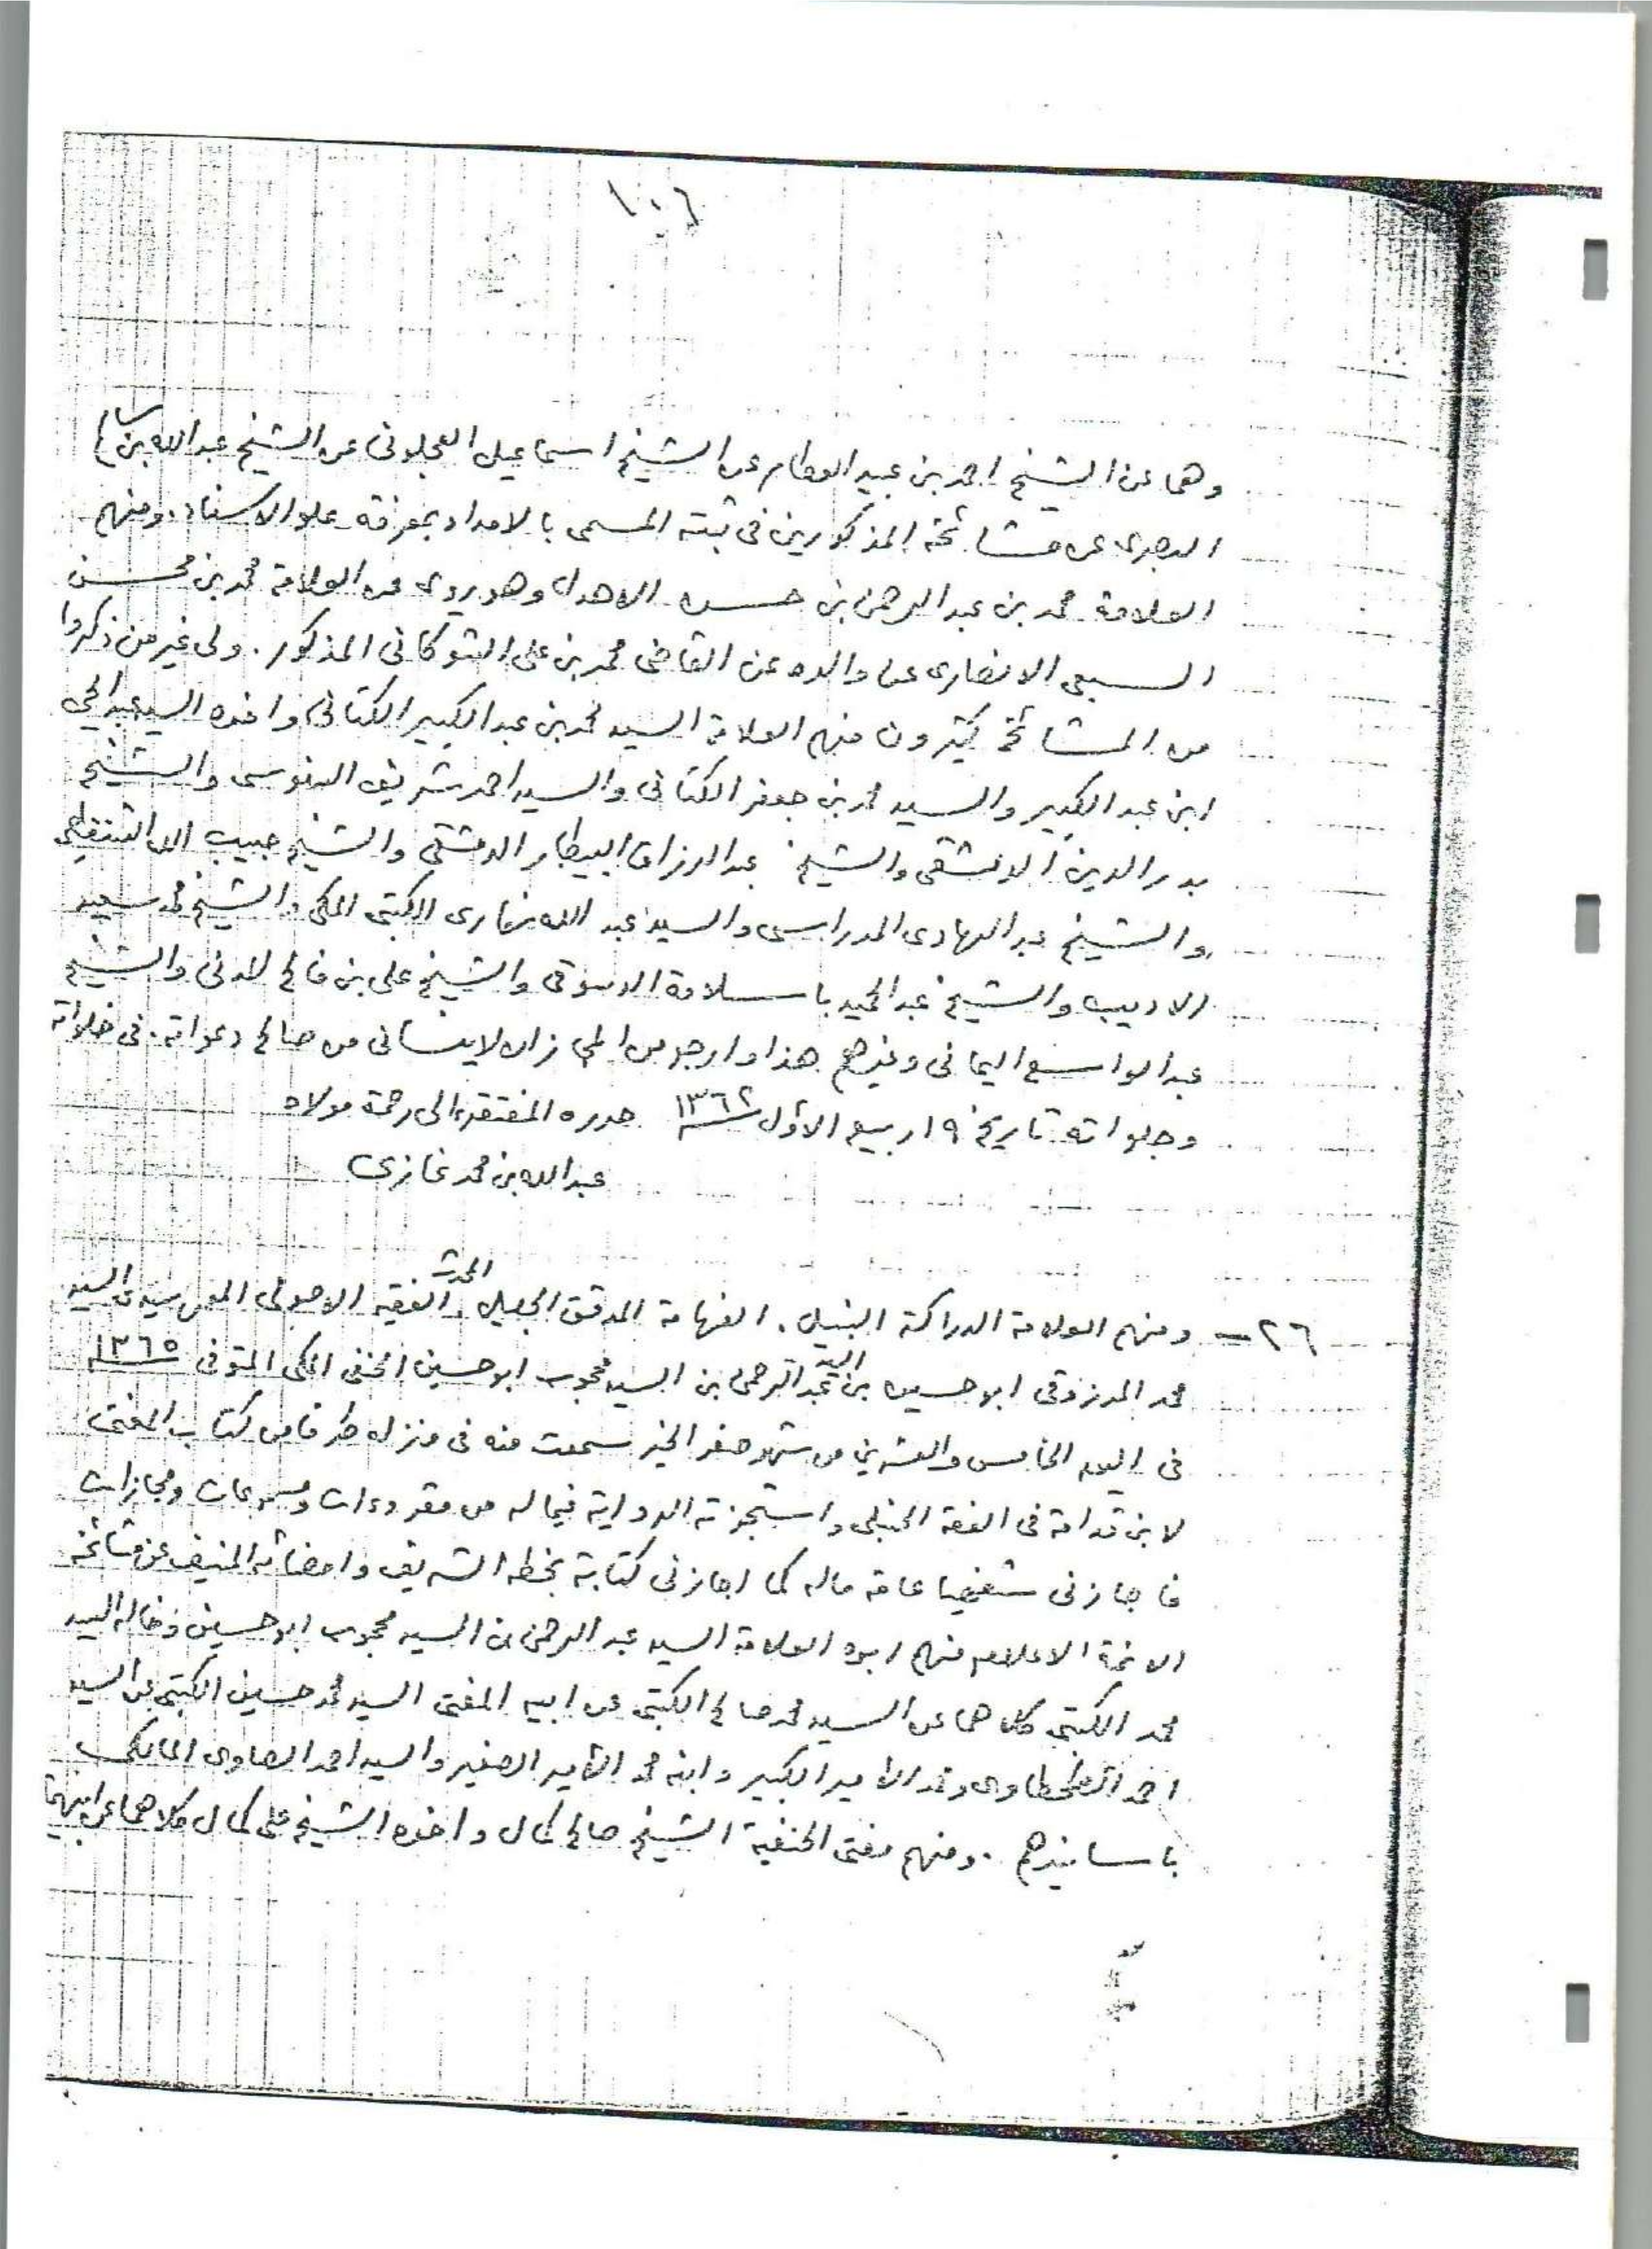 ١٠٦
وهما عن الشيخ احمد بن عبيد العطار عن الشيخ اسماعيل العجلونى عن الشيخ عبدالله بن سالم
البصرى عن مشائخه المذكورين فى ثبته المسمى بالامداد بمعرفة علو الاسناد. ومنهم
العلامة محمد بن عبدالرحمن بن حسن الاهدل وهو يروى عن العلامة محمد بن محسن
السبعى الانصارى عن والده عن القاضى محمد بن على الشوكانى المذكور. ولى غير من ذكروا
من المشائخ كثيرون منهم العلامة السيد محمد بن عبدالكبير الكتانى واخوه السيد عبدالحي
ابن عبدالكبير والسيد محمد بن جعفر الكتانى والسيد احمد شريف السنوسى والشيخ
بدرالدين الدمشقى والشيخ عبدالرزاق البيطار الدمشقى والشيخ حبيب الله الشنقيطى
والشيخ عبدالهادى المدراسى والسيد عبدالله بخارى الكتبى المكى والشيخ محمد سعيد
الاديب والشيخ عبدالحميد باسلامة الدسوقى والشيخ على بن فالح المدنى والشيخ
عبدالواسع اليمانى وغيرهم هذا وارجو من المجاز ان لاينسانى من صالح دعواته. فى خلواته
وجلواته تاريخ ١٩ ربيع الأول ١٣٦٢ حرره المفتقر الى رحمة مولاه
عبدالله بن محمد غازى
٢٦ – ومنهم العلامة الدراكة النبيل. الفهامة المدقق الجليل. المحدث الفقيه الاصولى سيدى السيد
محمد المرزوقى ابو حسين بن السيد عبدالرحمن بن السيد محجوب ابو حسين الحنفى المكى المتوفى ١٣٦٥
فى اليوم الخامس والعشرين من شهر صفر الخير سمعت منه فى منزله طرفا من كتاب المغنى
لابن قدامة فى الفقه الحنبلى واستجزته الرواية فيما له من مقروءات ومسموعات ومجازات
فاجازنى شفهيا عامة ماله كما اجازنى كتابة بخطه الشريف وامضائه المنيف عن مشائخه
الائمة الاعلام منهم ابوه العلامة السيد عبدالرحمن بن السيد محجوب ابو حسين وخاله السيد
محمد الكتبى كلاهما عن السيد محمد صالح الكتبى عن ابيه المفتى السيد محمد حسين الكتبى عن السيد
احمد الطحطاوى ومحمد الامير الكبير وابنه محمد الامير الصغير والسيد احمد الصاوى المالكى
باسانيدهم. ومنهم مفتى الحنفية الشيخ صالح كمال واخوه الشيخ على كمال كلاهما عن ابيهما